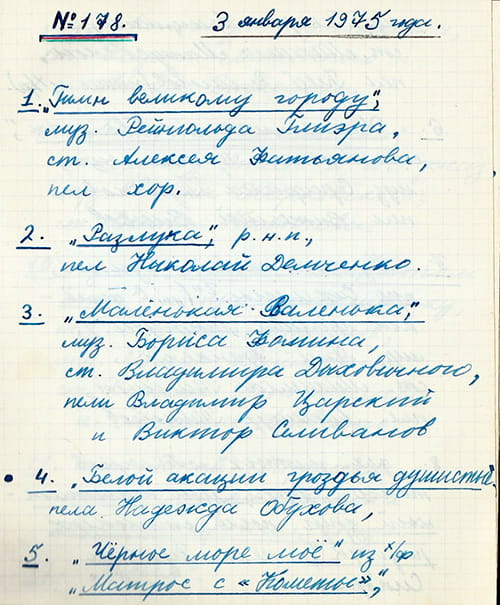 № 178. 3 января 1975 года.
1. "Гимн великому городу",
муз. Рейнгольда Глиэра,
ст. Алексея Фатьянова,
пел хор.
2. "Разлука", р.н.п.,
пел Николай Демченко.
3. "Маленькая Валенька",
муз. Бориса Фомина,
ст. Владимира Дыховичного,
пели Владимир Царский
и Виктор Селиванов
4. "Белой акации гроздья душистые
пела Надежда Обухова,
5. "Чёрное море моё" из х/ф
"Матрос с «Кометы»",